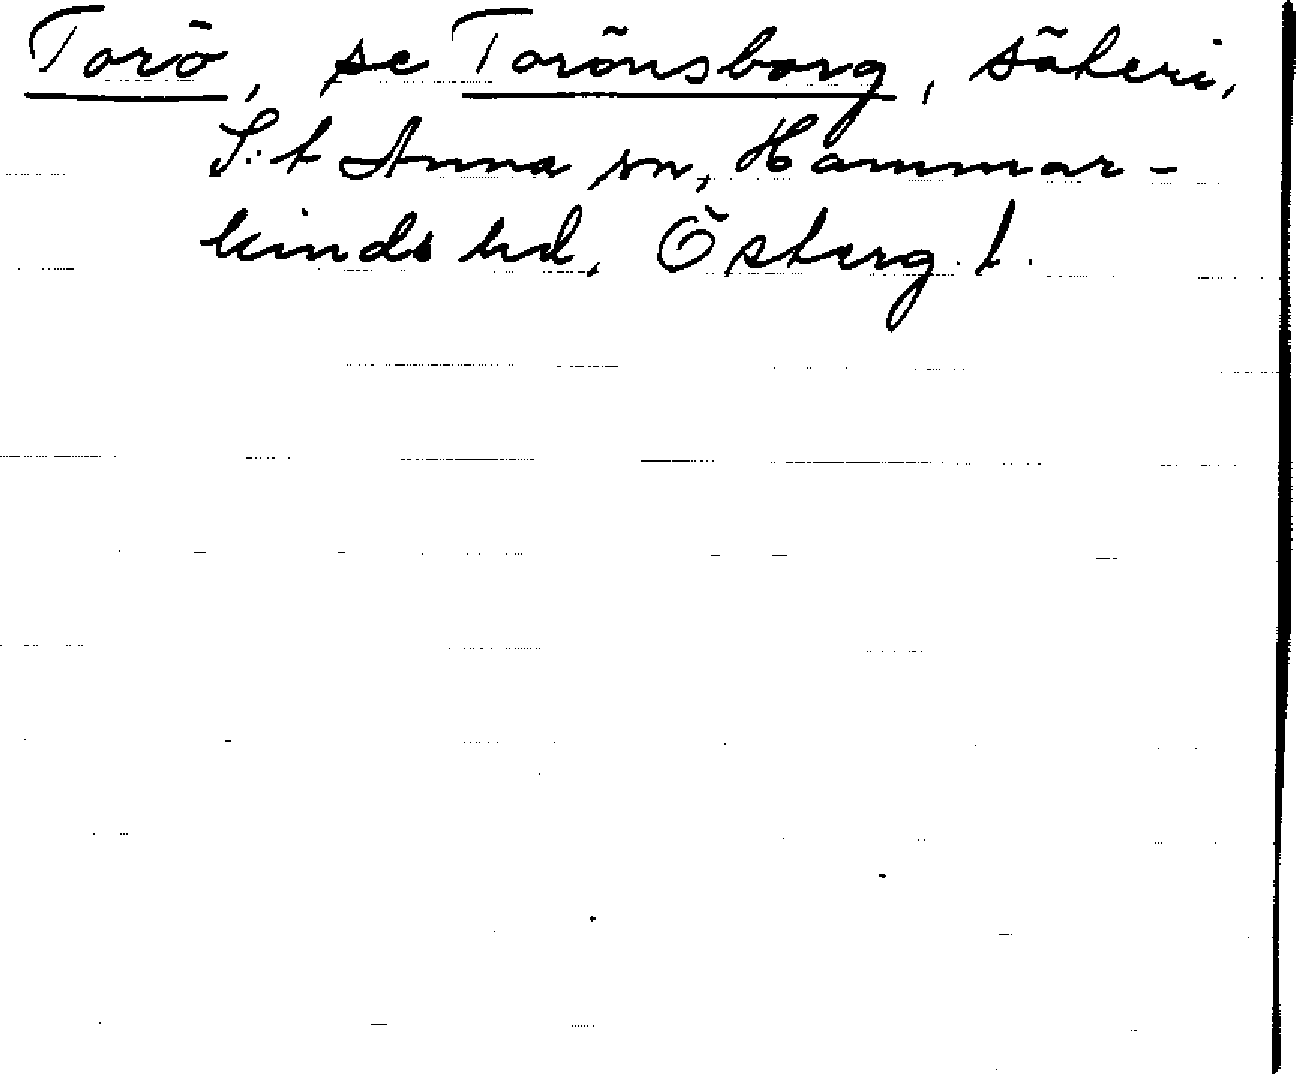 Torö, se Torönsborg, säteri,
S:t Anna sn, Hammar-
kinds hd, Österg. l.